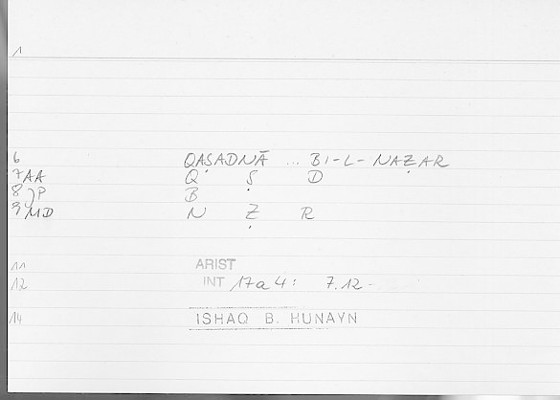 1
6 QAṢADNĀ ... BI-L-NAẒAR
7 AA Q Ṣ D
8 JP B
9 MD N Ẓ R
11 ARIST
12 INT 17a4: 7.12-
14 ISHAQ B. HUNAYN